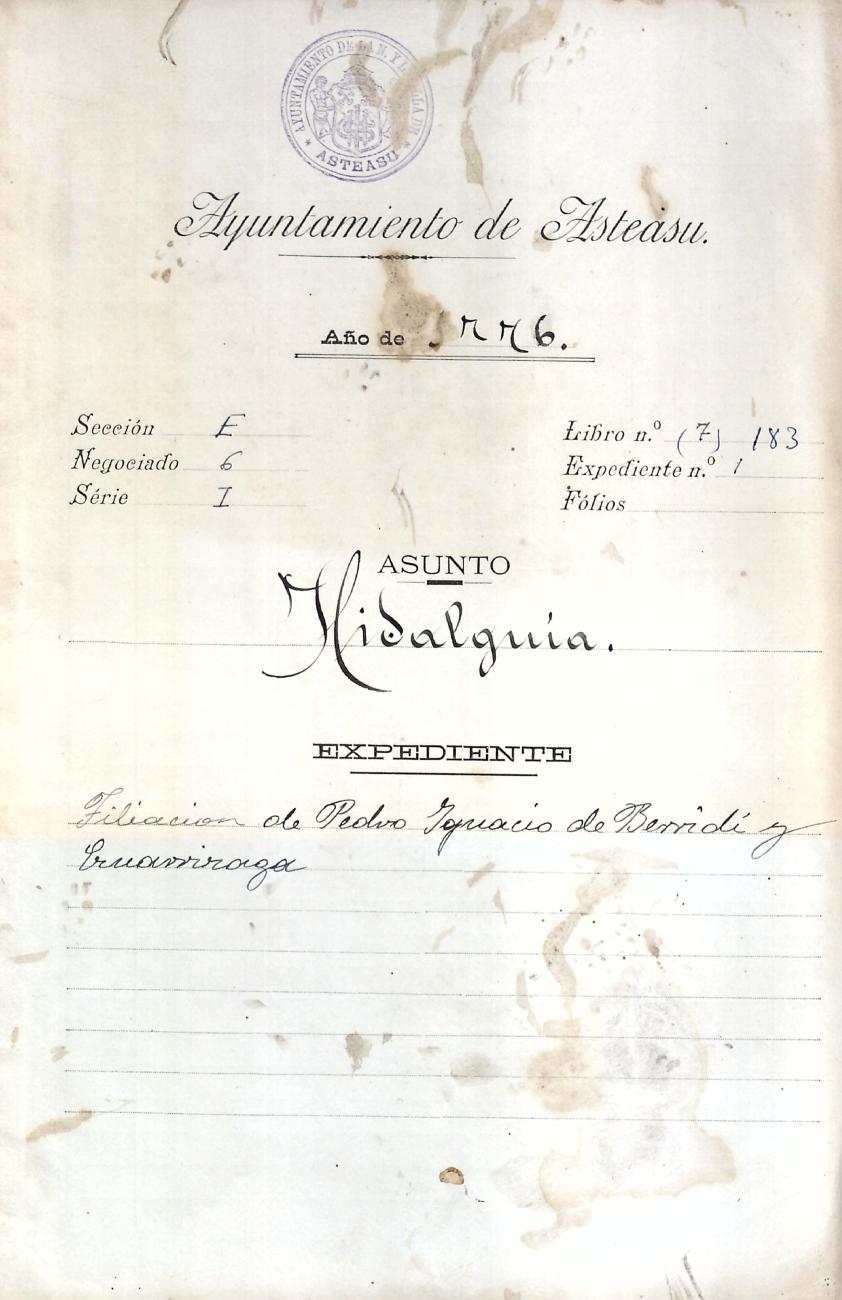 AYUNTAMIENTO DE LA N. Y L. VILLA DE
* ASTEASU *
Ayuntamiento de Asteasu.
Año de 1776.
Sección E
Negociado 6
Série I
Libro n.º (7) 183
Expediente n.º 1
Fólios
ASUNTO
Hidalguía.
EXPEDIENTE
Filiacion de Pedro Ignacio de Berridi y